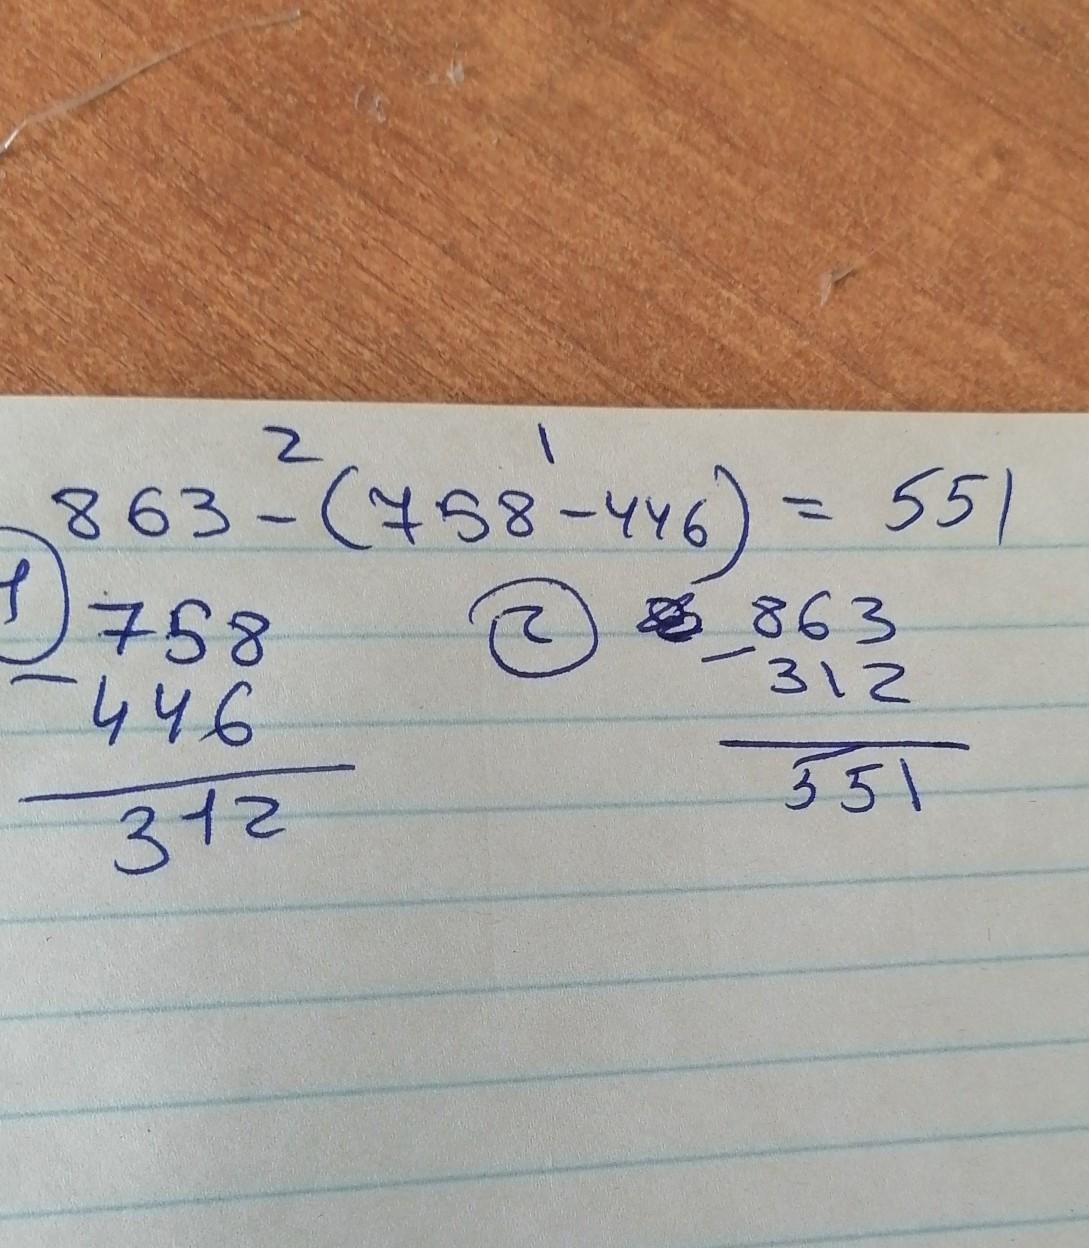 2 1
863 - (758 - 446) = 551
1 758 2 863
- 446 - 312
312 551